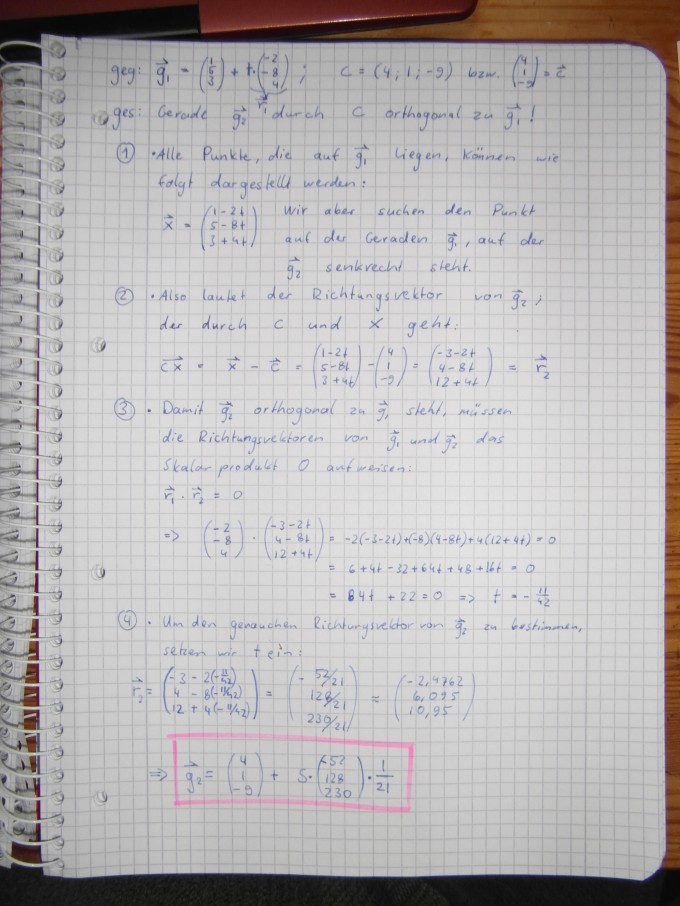 geg: g₁ = (1 5 3) + t·(-2 -8 4); C = (4; 1; -9) bzw. (4 1 -9) = c
r₁
ges: Gerade g₂ durch C orthogonal zu g₁!
① • Alle Punkte, die auf g₁ liegen, können wie
folgt dargestellt werden:
x = (1-2t 5-8t 3+4t) Wir aber suchen den Punkt
auf der Geraden g₁, auf der
g₂ senkrecht steht.
② • Also lautet der Richtungsvektor von g₂,
der durch C und X geht:
CX = x - c = (1-2t 5-8t 3+4t) - (4 1 -9) = (-3-2t 4-8t 12+4t) = r₂
③ • Damit g₂ orthogonal zu g₁ steht, müssen
die Richtungsvektoren von g₁ und g₂ das
Skalarprodukt 0 aufweisen:
r₁ · r₂ = 0
=> (-2 -8 4) · (-3-2t 4-8t 12+4t) = -2(-3-2t)+(-8)(4-8t)+4(12+4t) = 0
= 6+4t-32+64t+48+16t = 0
= 84t + 22 = 0 => t = - 11/42
④ • Um den genauchen Richtungsvektor von g₂ zu bestimmen,
setzen wir t ein:
r₂ = (-3 - 2(-11/42) 4 - 8(-11/42) 12 + 4(-11/42)) = (- 52/21 128/21 230/21) ≈ (-2,4762 6,095 10,95)
=> g₂ = (4 1 -9) + s·(-52 128 230) · 1/21